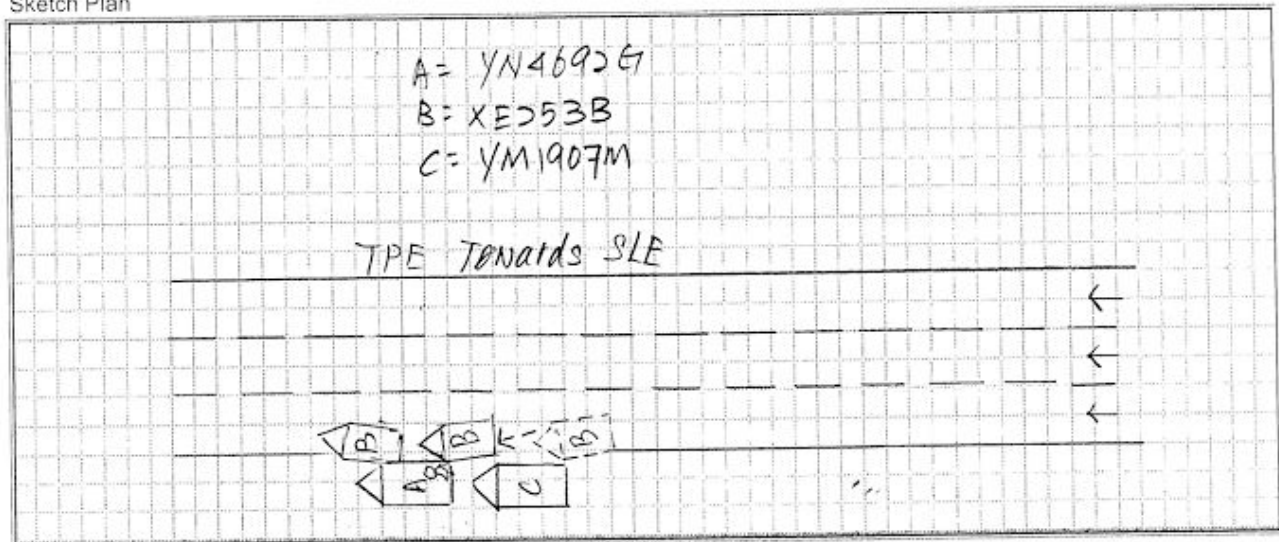 Sketch Plan
A = YN4692G
B = XE253B
C = YM1907M
TPE Towards SLE
B B B
A 8 C